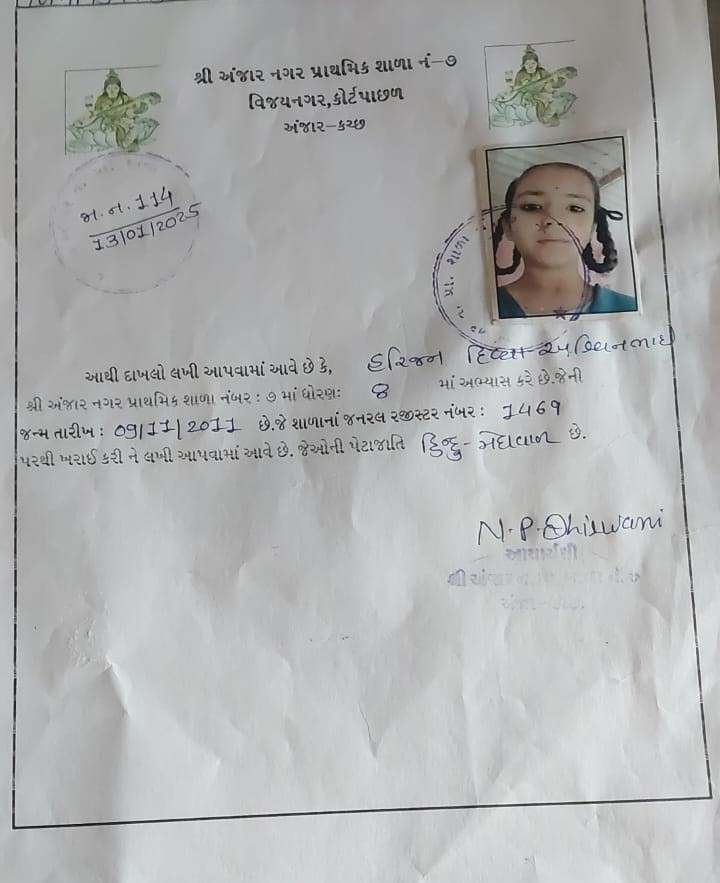 શ્રી અંજાર નગર પ્રાથમિક શાળા નં-૭
વિજયનગર,કોર્ટપાછળ
અંજાર-કચ્છ
જા.ન. 114
13/01/2025
પ્રા. શાળા
આથી દાખલો લખી આપવામાં આવે છે કે, હરિજન દિવ્યા અશ્વિનભાઈ
શ્રી અંજાર નગર પ્રાથમિક શાળા નંબર : ૭ માં ધોરણ: 8 માં અભ્યાસ કરે છે.જેની
જન્મ તારીખ : 09/11/2011 છે.જે શાળાનાં જનરલ રજીસ્ટર નંબર : 1469
પરથી ખરાઈ કરી ને લખી આપવામાં આવે છે. જેઓની પેટાજાતિ હિન્દુ - મેઘવાળ છે.
N.P.Dhirwani
આચાર્યશ્રી
શ્રી અંજાર